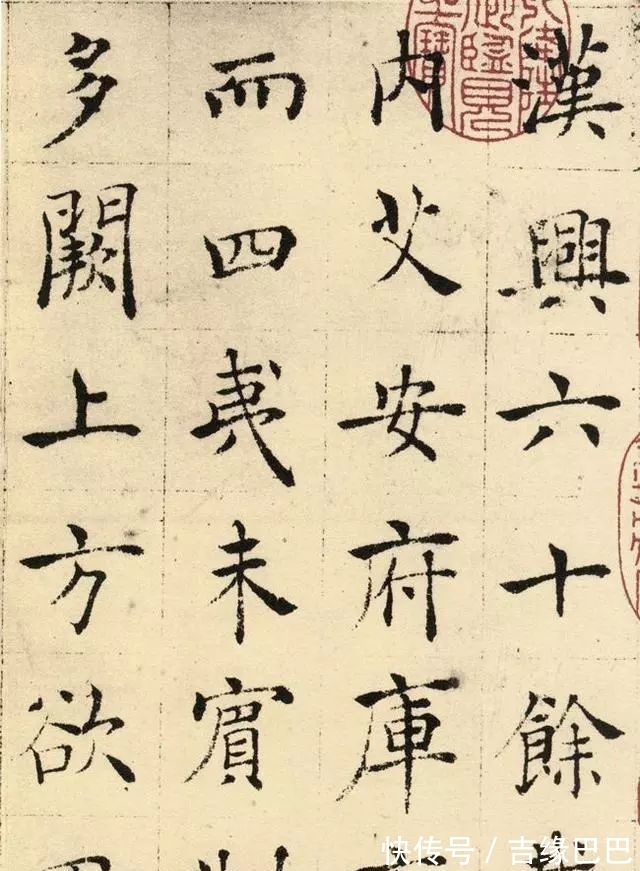 漢興六十餘
內艾安府庫
而四夷未賓
多闕上方欲
快传号 / 吉缘巴巴